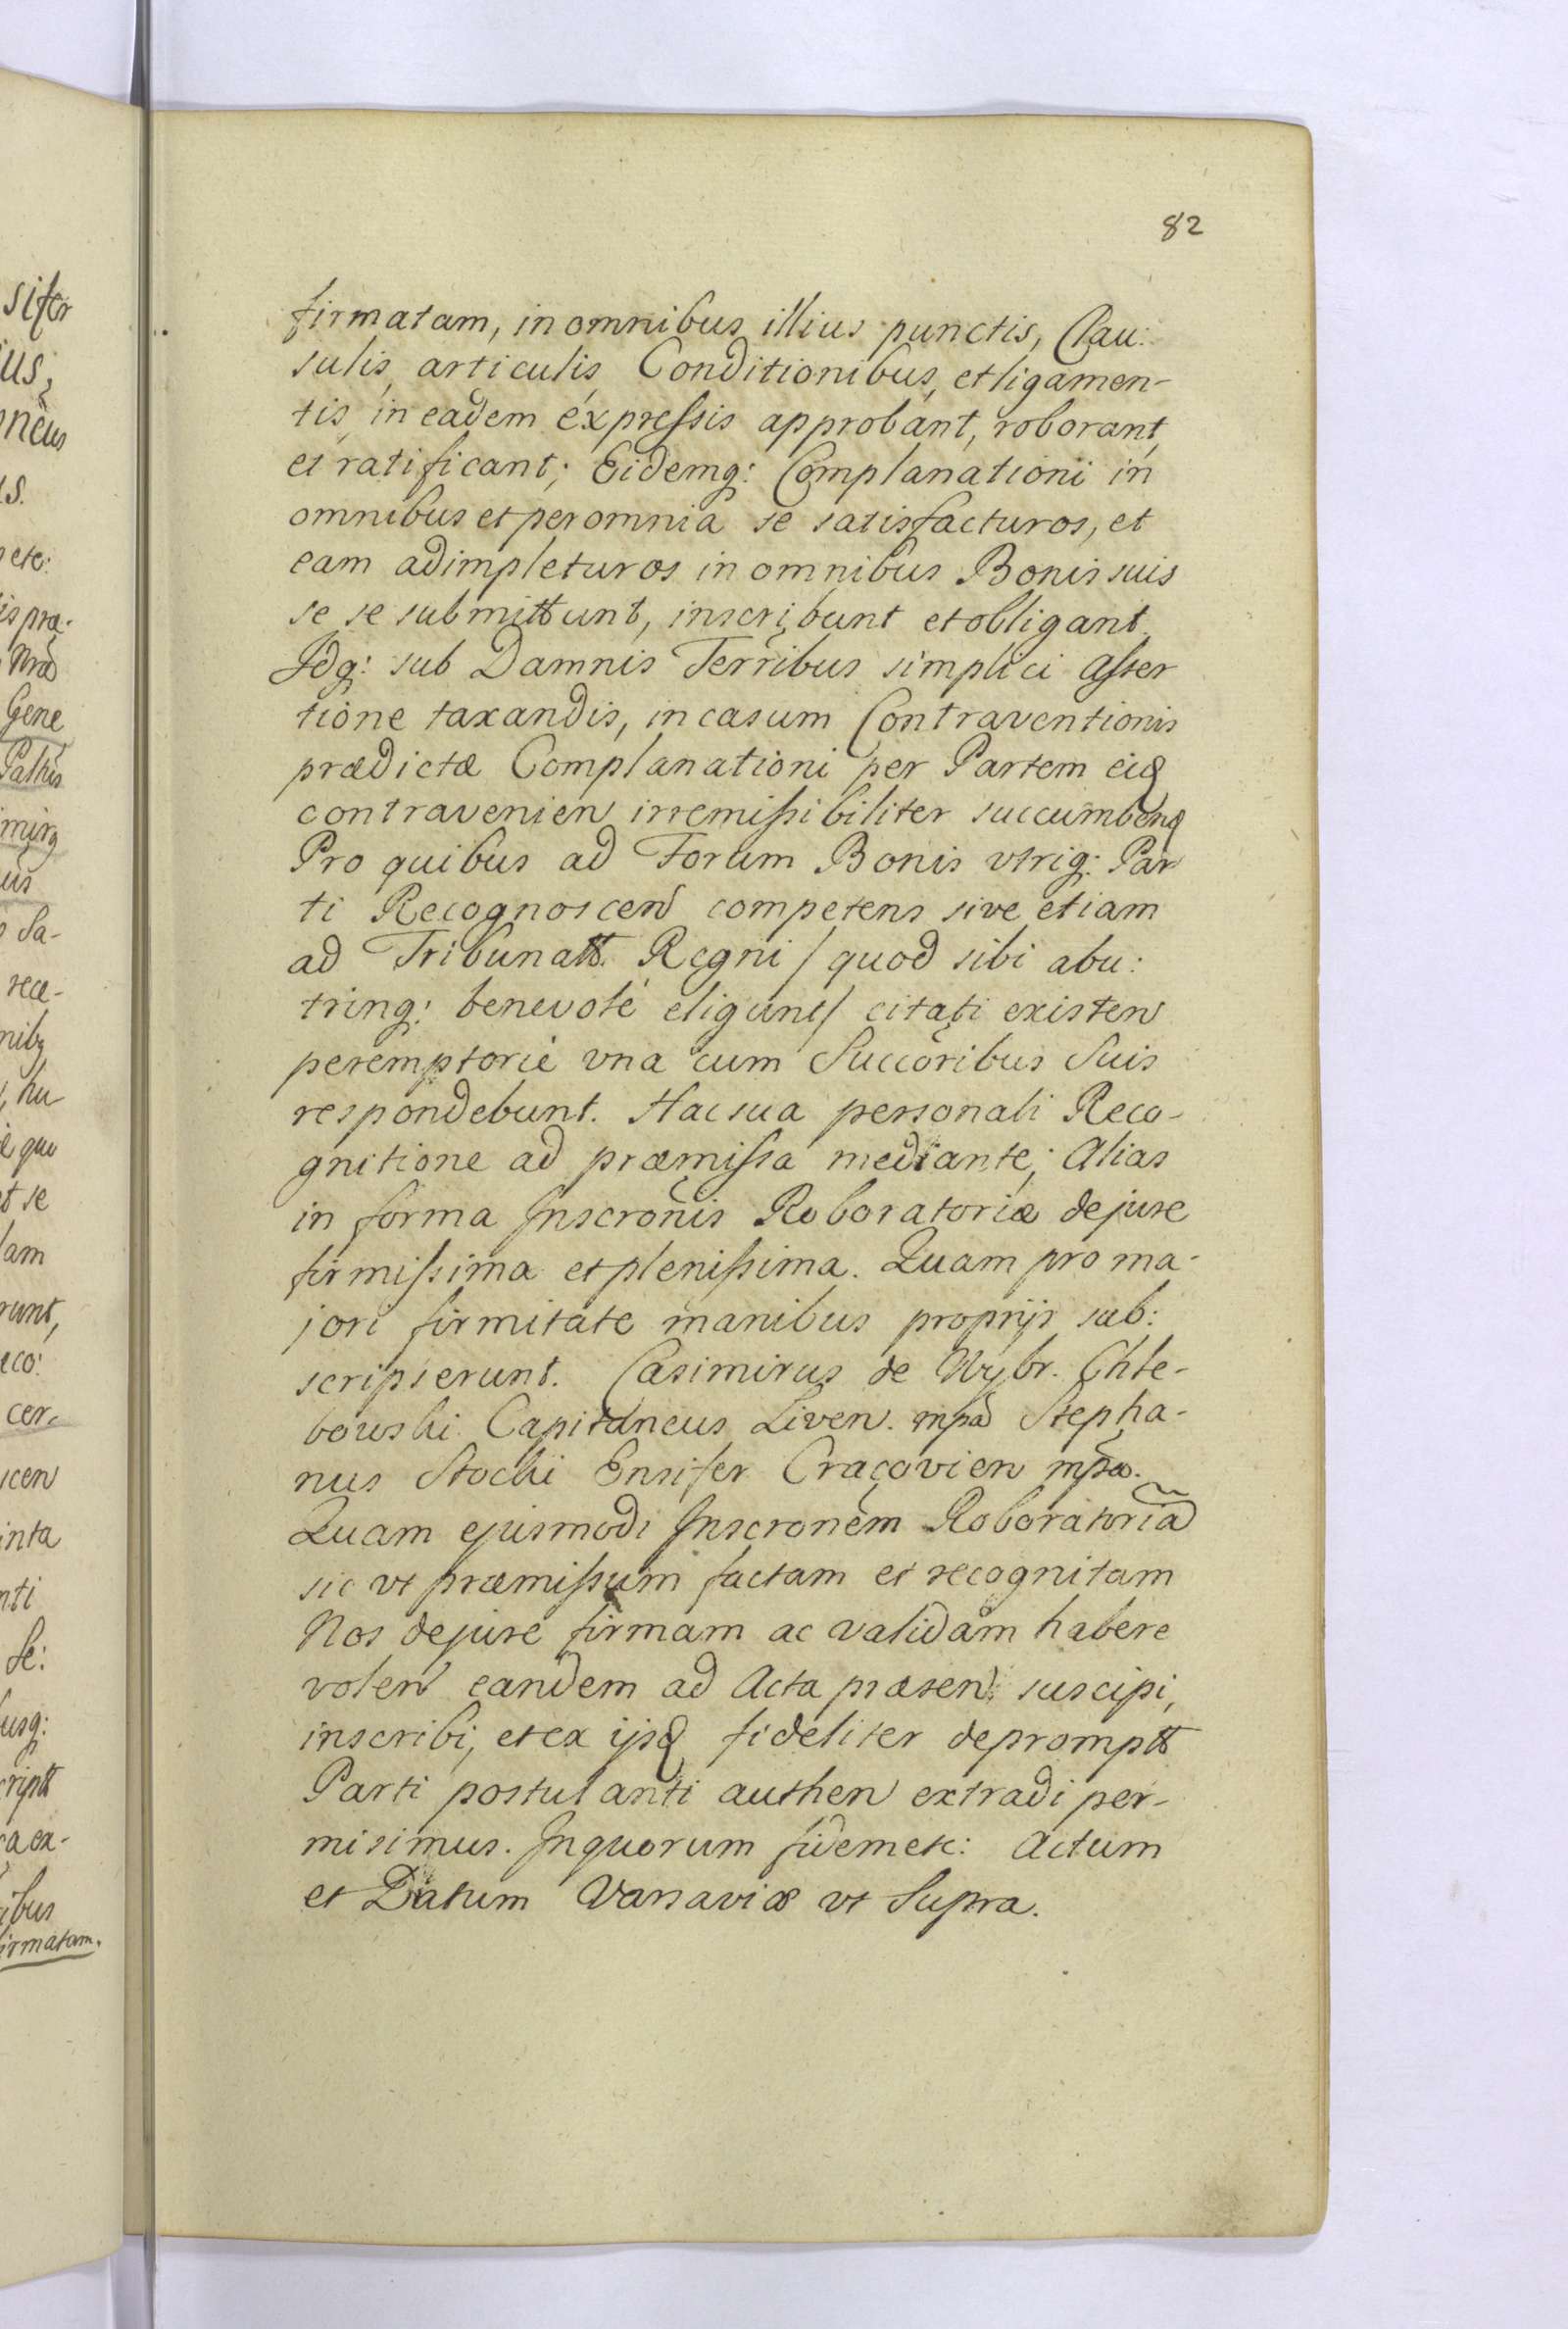 82
firmatam, in omnibus illius punctis, Clau:
sulis, articulis, Conditionibus, et ligamen-
tis, in eadem expreſsis approbant, roborant,
et ratificant; Eidemq: Complanationi in
omnibus et per omnia se satisfacturos, et
eam adimpleturos in omnibus Bonis suis
se se submittunt, inscribunt et obligant.
Idq: sub Damnis Terribus simplici aſser
tione taxandis, in casum Contraventionis
prædictæ Complanationi per Partem eid
contravenien irremiſsibiliter succumbend
Pro quibus ad Forum Bonis vtriq: Par
ti Recognoscen competens sive etiam
ad Tribunatt. Regni / quod sibi abu:
trinq: benevolé eligunt / citati existen
peremptorié vna cum Succoribus Suis
respondebunt. Hac sua personali Reco-
gnitione ad præmiſsa mediante; Alias
in forma Inscronis Roboratoriæ de jure
firmiſsima et pleniſsima. Quam pro ma-
jori firmitate manibus proprijs sub:
scripserunt. Casimirus de Wybr. Chle-
bowski Capitaneus Liven. mpa Stepha-
nus Stocki Ensifer Cracovien mpa.
Quam ejusmodi Inscronem Roboratoria
sic vt præmiſsum factam et recognitam
Nos de jure firmam ac validam habere
volen eandem ad Acta præsen suscipi,
inscribi, et ex ijsd fideliter deprompt
Parti postulanti authen extradi per-
misimus. In quorum fidem etc: Actum
et Datum Varsaviæ vt Supra.